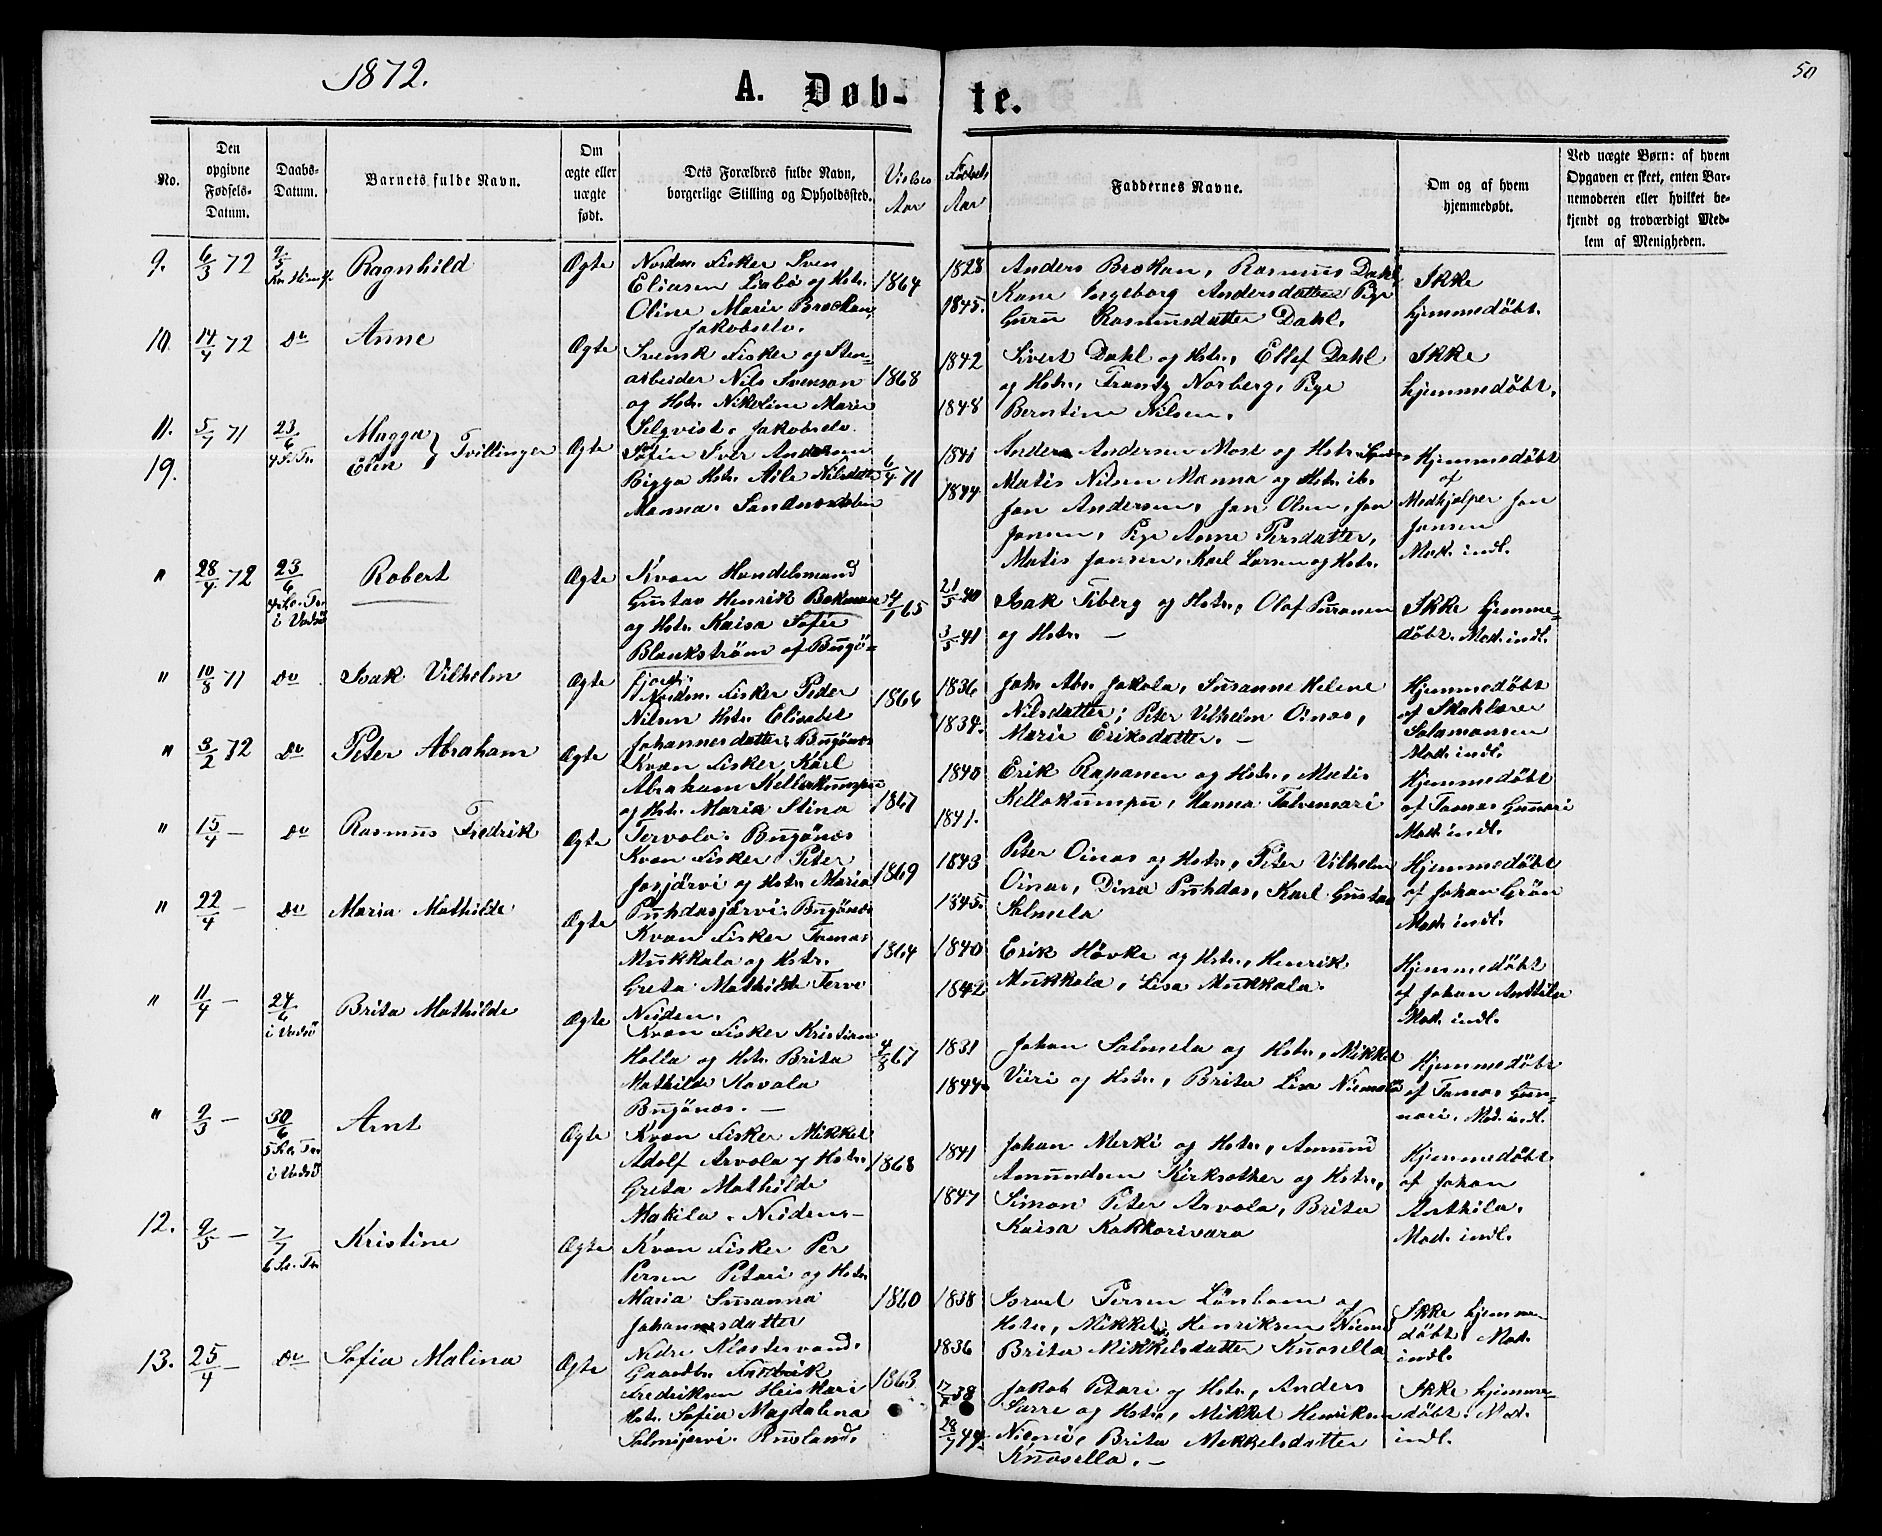 1872.
A. Døb-
te.
50
No.
Den
opgivne
Fødsels-
Datum.
Daabs-
Datum.
Barnets fulde Navn.
Om
ægte eller
uægte
født.
Dets Forældres fulde Navn,
borgerlige Stilling og Opholdssted.
Vielses
Aar
Fødsels
Aar
Faddernes Navne.
Om og af hvem
hjemmedøbt.
Ved uægte Børn: af hvem
Opgaven er skeet, enten Bar-
nemoderen eller hvilket be-
kjendt og troværdigt Med-
lem af Menigheden.
9.
6/3 72
9/5
Ragnhild
Ægte
Nordm. Fisker Sven
Eliasen Liabø og Hstr.
Oline Marie Brækan
Jakobselv.
1864
1828
1845.
Anders Brækan, Rasmus Dahl,
Kone Ingeborg Andersdatter Pige
Guru Rasmusdatter Dahl.
Ikke
hjemmedøbt.
10.
14/4 72
Do
Anne
Ægte
Svensk Fisker og Sten-
arbeider Nils Svenson
og Hstr. Nikoline Marie
Selqvist. Jakobselv.
1868
1842
1848
Sivert Dahl og Hstr., Ellef Dahl
og Hstr., Frantz Norberg, Pige
Berntine Nilsen.
Ikke
hjemmedøbt.
11.
19.
5/7 71
23/6
4 S. Tr.
Magga
Elen } Tvillinger
Ægte
Søfin Iver Andersen
Bigga Hstr. Aile Nilsdatter
Manna.
6/4 71
1841
1844
Anders Andersen Most og Hstr.
Matis Nilsen Manna og Hstr. ib.
Jon Andersen, Jon Olsen, Jon
Jonsen, Pige Anne Persdatter,
Matis Jonsen, Karl Larsen og Hstr.
Hjemmedøbt
af
Medhjælper Jon
Jonsen
Mod. indl.
"
28/4 72
23/6
4 S. e. Tr.
i Vadsø
Robert
Ægte
Kvæn Handelsmand
Gustav Henrik Bekman
og Hstr. Kaisa Sofie
Blankstrøm af Bugø-
fjord.
4/1 65
21/5 40
3/5 41
Isak Fiberg og Hstr., Olaf Pusanen
og Hstr. —
Ikke hjemme-
døbt. Mod. indl.
"
10/8 71
Do
Isak Vilhelm
Ægte
Nordm. Fisker Peder
Nilsen Hstr. Elisabet
Johannesdatter, Bugønæs
1866
1836
1834.
Joh. Abr. Jakola, Susanne Helene
Nilsdatter; Peter Vilhelm Oinas,
Marie Eriksdatter. —
Hjemmedøbt
af Skolelærer
Salamonsen
Mod. indl.
"
3/2 72
Do
Peter Abraham
Ægte
Kvæn Fisker Karl
Abraham Kellokumpu
og Hstr. Maria Stina
Tervola. Bugønæs
1867
1840
1841.
Erik Rapanen og Hstr., Matis
Kellokumpu, Hanna Talvensari
Hjemmedøbt
af Tomas Gunnari
Mod. indl.
"
15/4 —
Do
Rasmus Fredrik
Ægte
Kvæn Fisker Peter
Josjärvi og Hstr. Maria
Puhdasjärvi. Bugønæs
1869
1843
1845.
Peter Oinas og Hstr., Peter Vilhelm
Oinas, Dina Puhdas, Karl Gustav
Salmela
Hjemmedøbt
af Johan Grøn
Mod. indl.
"
22/4 —
Do
Maria Mathilde
Ægte
Kvæn Fisker Tomas
Mukkala og Hstr.
Greta Mathilde Tervo
Neiden.
1864
1840
1842
Erik Høvke og Hstr., Henrik
Mukkala, Lisa Mukkala.
Hjemmedøbt
af Johan Anttila
Mod. indl.
"
11/4 —
24/6
i Vadsø
Brita Mathilde
Ægte
Kvæn Fisker Kristian
Holla og Hstr. Brita
Mathilde Kavala
Bugønæs. —
4/8 67
1831
1844.
Johan Salmela og Hstr., Mikkel
Viiri og Hstr., Brita Lisa Niemelä
Hjemmedøbt
af Tomas Gun-
nari. Mod. indl.
"
9/3 —
30/6
5 S. e. Tr.
i Vadsø
Arnt
Ægte
Kvæn Fisker Mikkel
Adolf Arvola og Hstr.
Greta Mathilde
Makila. Neiden. —
1868
1841
1847
Johan Merki og Hstr., Amund
Amundsen Kirksæther og Hstr.,
Simon Peter Arvola, Brita
Kaisa Kakkorivara
Hjemmedøbt
af Johan
Anthila.
Mod. indl.
12.
9/5 —
7/7
6 S. e. Tr.
Kristine
Ægte
Kvæn Fisker Per
Persen Petari og Hstr.
Maria Susanna
Johannesdatter
Nedre Klostervand.
1860
1838
1836
Isrel Persen Lønbom og
Hstr., Mikkel Henriksen Niemi
Brita Mikkelsdatter Knosella
Ikke hjemme-
døbt. Mod.
indl.
13.
25/4 —
Do
Sofia Malina
Ægte
Gaardbr. Fredrik
Fredriksen Heiskari
Hstr. Sofia Magdalena
Salmijærvi. Rusland.
1863
38
28/7 44.
Jakob Petari og Hstr., Anders
Sarre og Hstr., Mikkel Henriksen
Niemi, Brita Mikkelsdatter
Knosella. —
Ikke hjemme-
døbt. Mod.
indl.